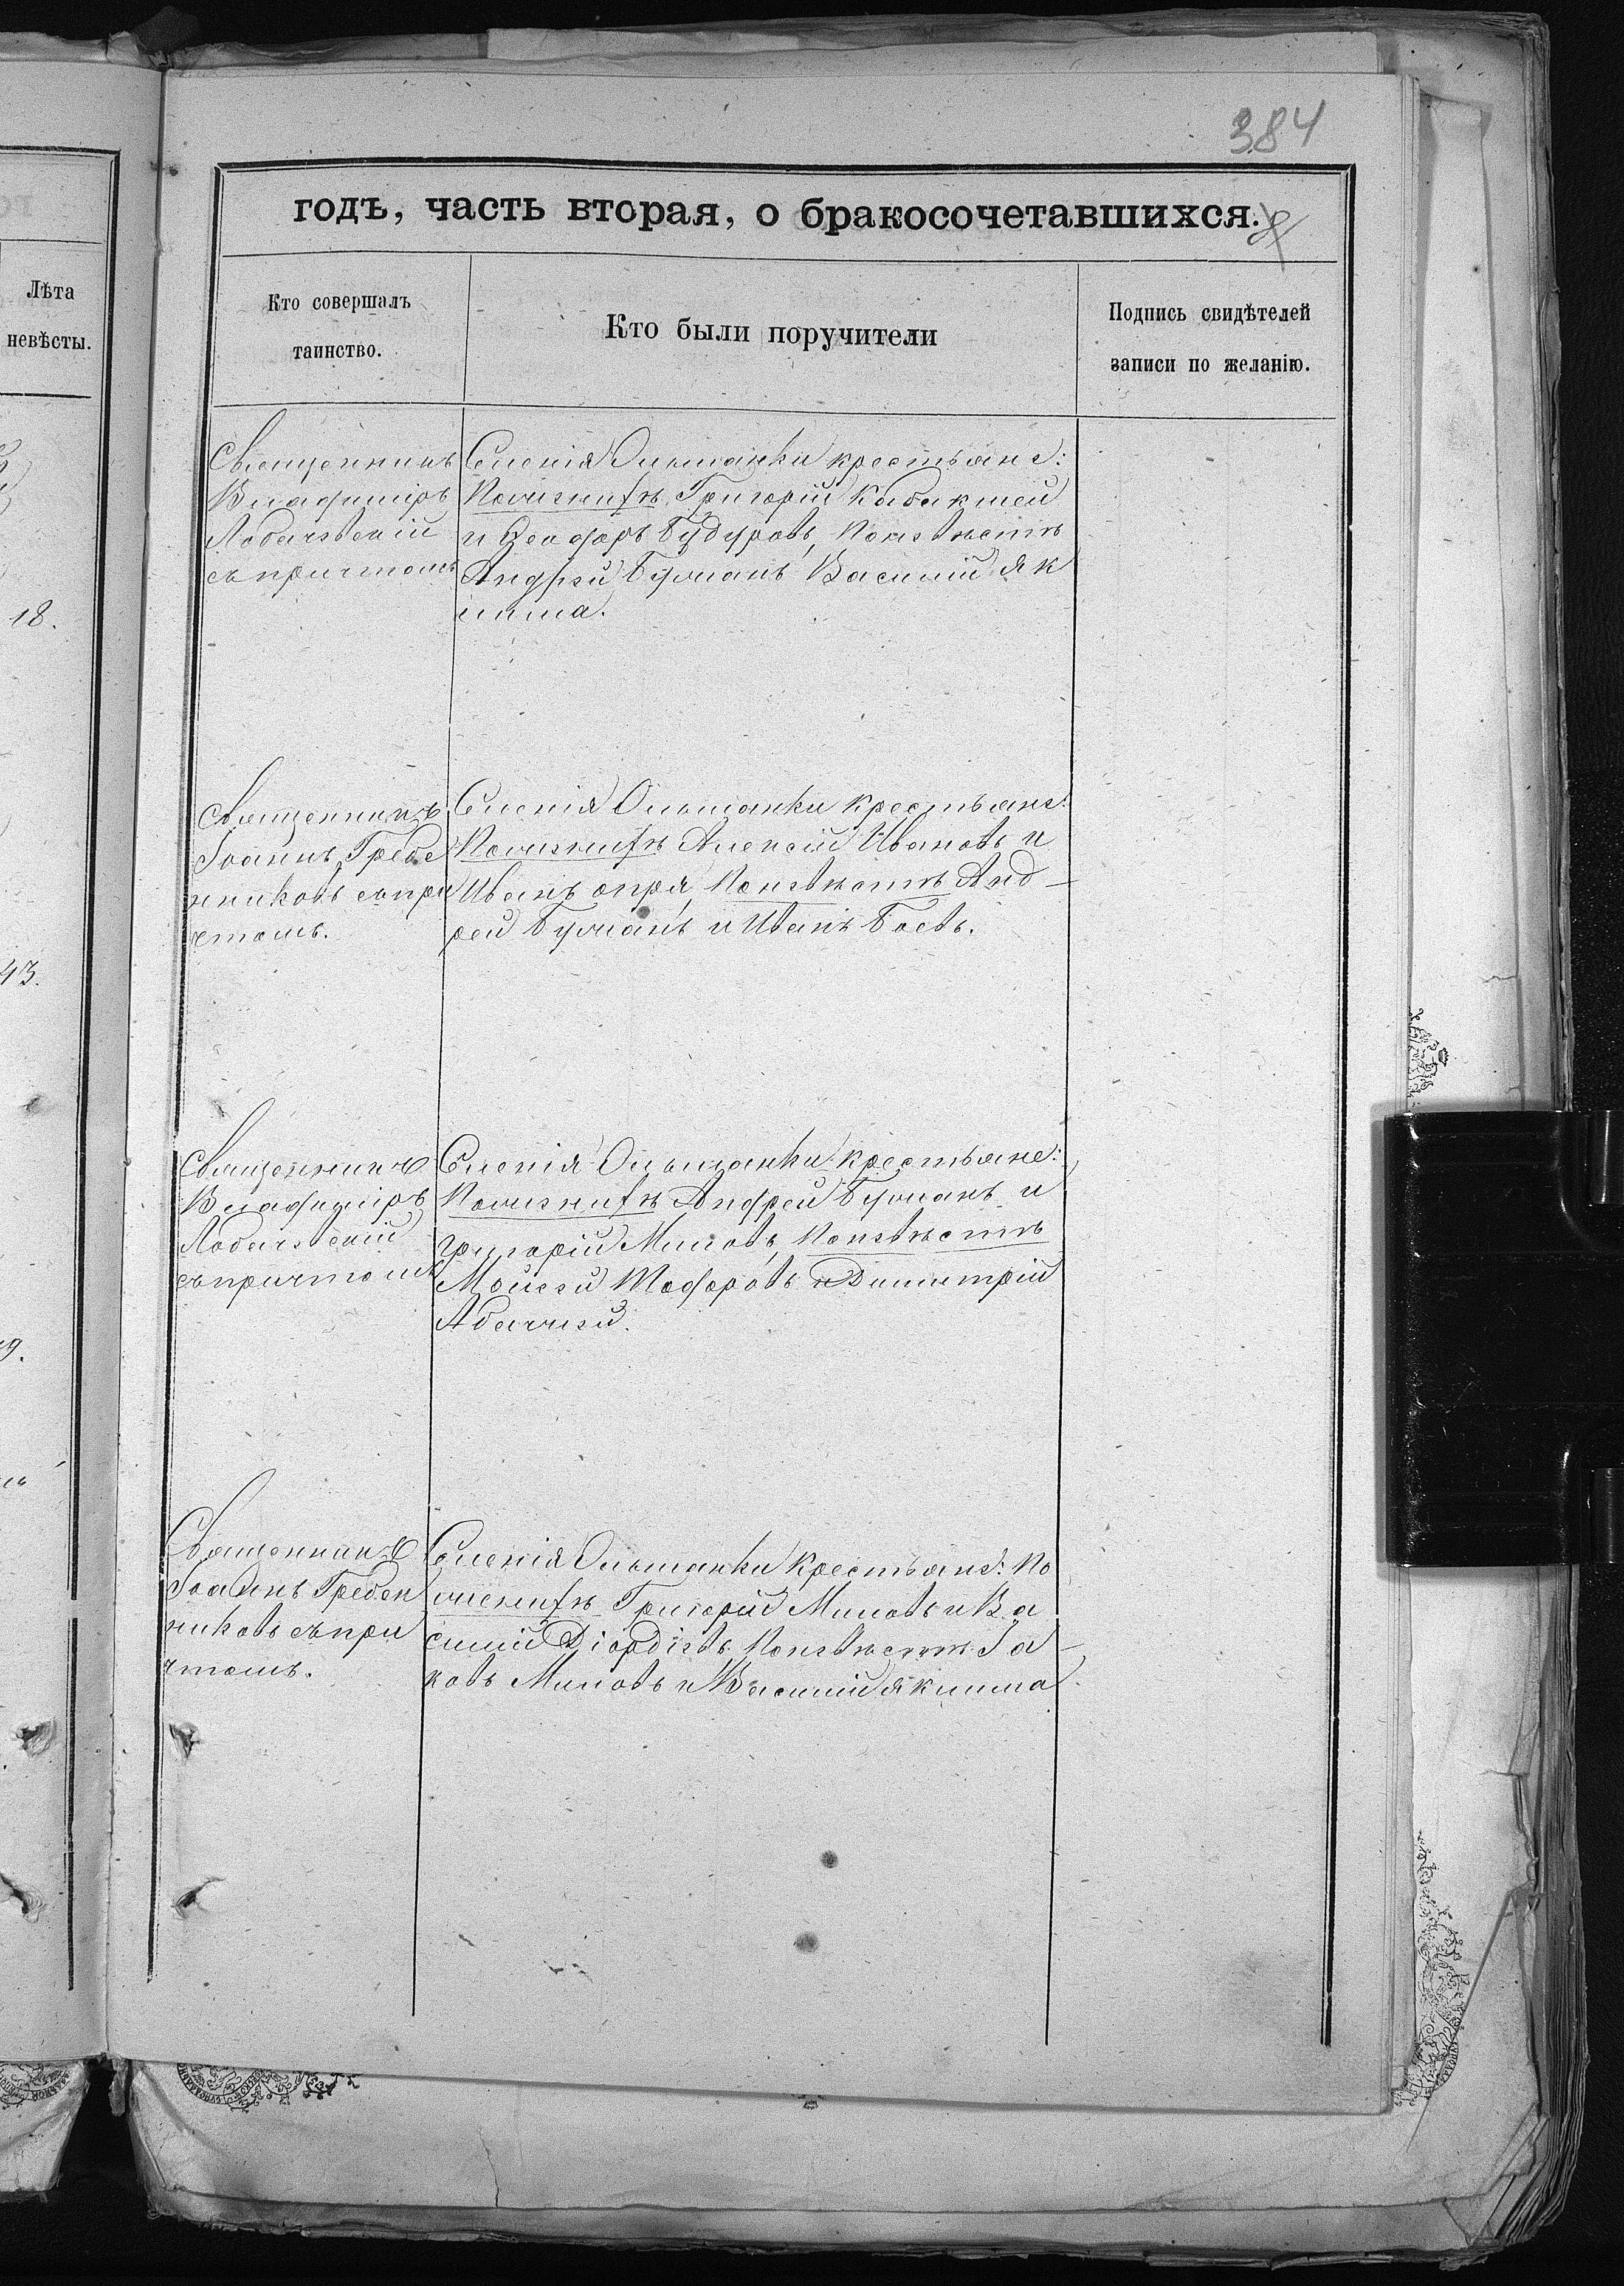 384
годъ, часть вторая, о бракосочетавшихся.
Лѣта
невѣсты.
Кто совершалъ
таинство.
Кто были поручители
Подпись свидѣтелей
записи по желанію.
18.
43.
9.
Священникъ
Владиміръ
Лобачевскій
съ причтомъ
Селенія Ольшанки крестьяне:
По женихѣ Григорій Кабакчей
и Ѳеодоръ Будуровъ, по невѣстѣ
Андрей Бульманъ Василій Як
имма.
Священникъ
Іоаннъ Гребе
нниковъ съ при
чтомъ.
Селенія Ольшанки крестьяне:
По женихѣ Алексій Ивановъ и
Иванъ опря, по невѣстѣ Анд-
рей Бульманъ и Иванъ Боевъ.
Священникъ
Владиміръ
Лобачевскій
съ причтомъ
Селенія Ольшанки крестьяне:
По женихѣ Андрей Бульманъ и
Григорій Миновъ, по невѣстѣ
Мойсей Тодоровъ и Димитрій
Абаджей.
Священникъ
Іоаннъ Гребен
никовъ съ при
чтомъ.
Селенія Ольшанки крестьяне: По
женихѣ Григорій Миновъ и Ва
силій Діордіевъ по невѣстѣ Іа-
ковъ Миновъ и Василій Якимма